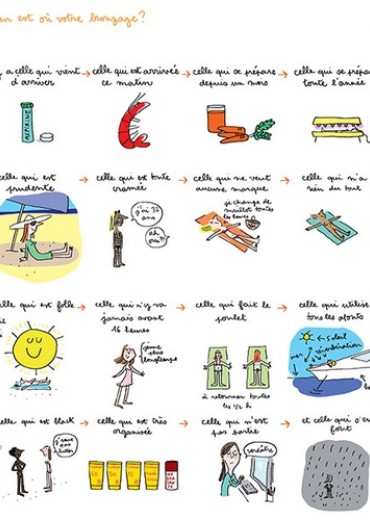 en est où votre bronzage?
y a celle qui vient
d'arriver
celle qui est arrivée
ce matin
celle qui se prépare
depuis un mois
celle qui se prépare
toute l'année
celle qui est
prudente
celle qui est toute
cramée
j'ai 32
ans
celle qui ne veut
aucune marque
je change de
maillot toutes
les heures
celle qui n'a
rien du tout
celle qui est folle
celle qui n'y va
jamais avant
16 heures
celle qui fait le
poulet
à retourner toutes
les 1/2 h
celle qui utilise
tous les afonts
soleil
réverbération
mer
celle qui est black
celle qui est très
organisée
celle qui n'est
pas partie
et celle qui s'en
fout